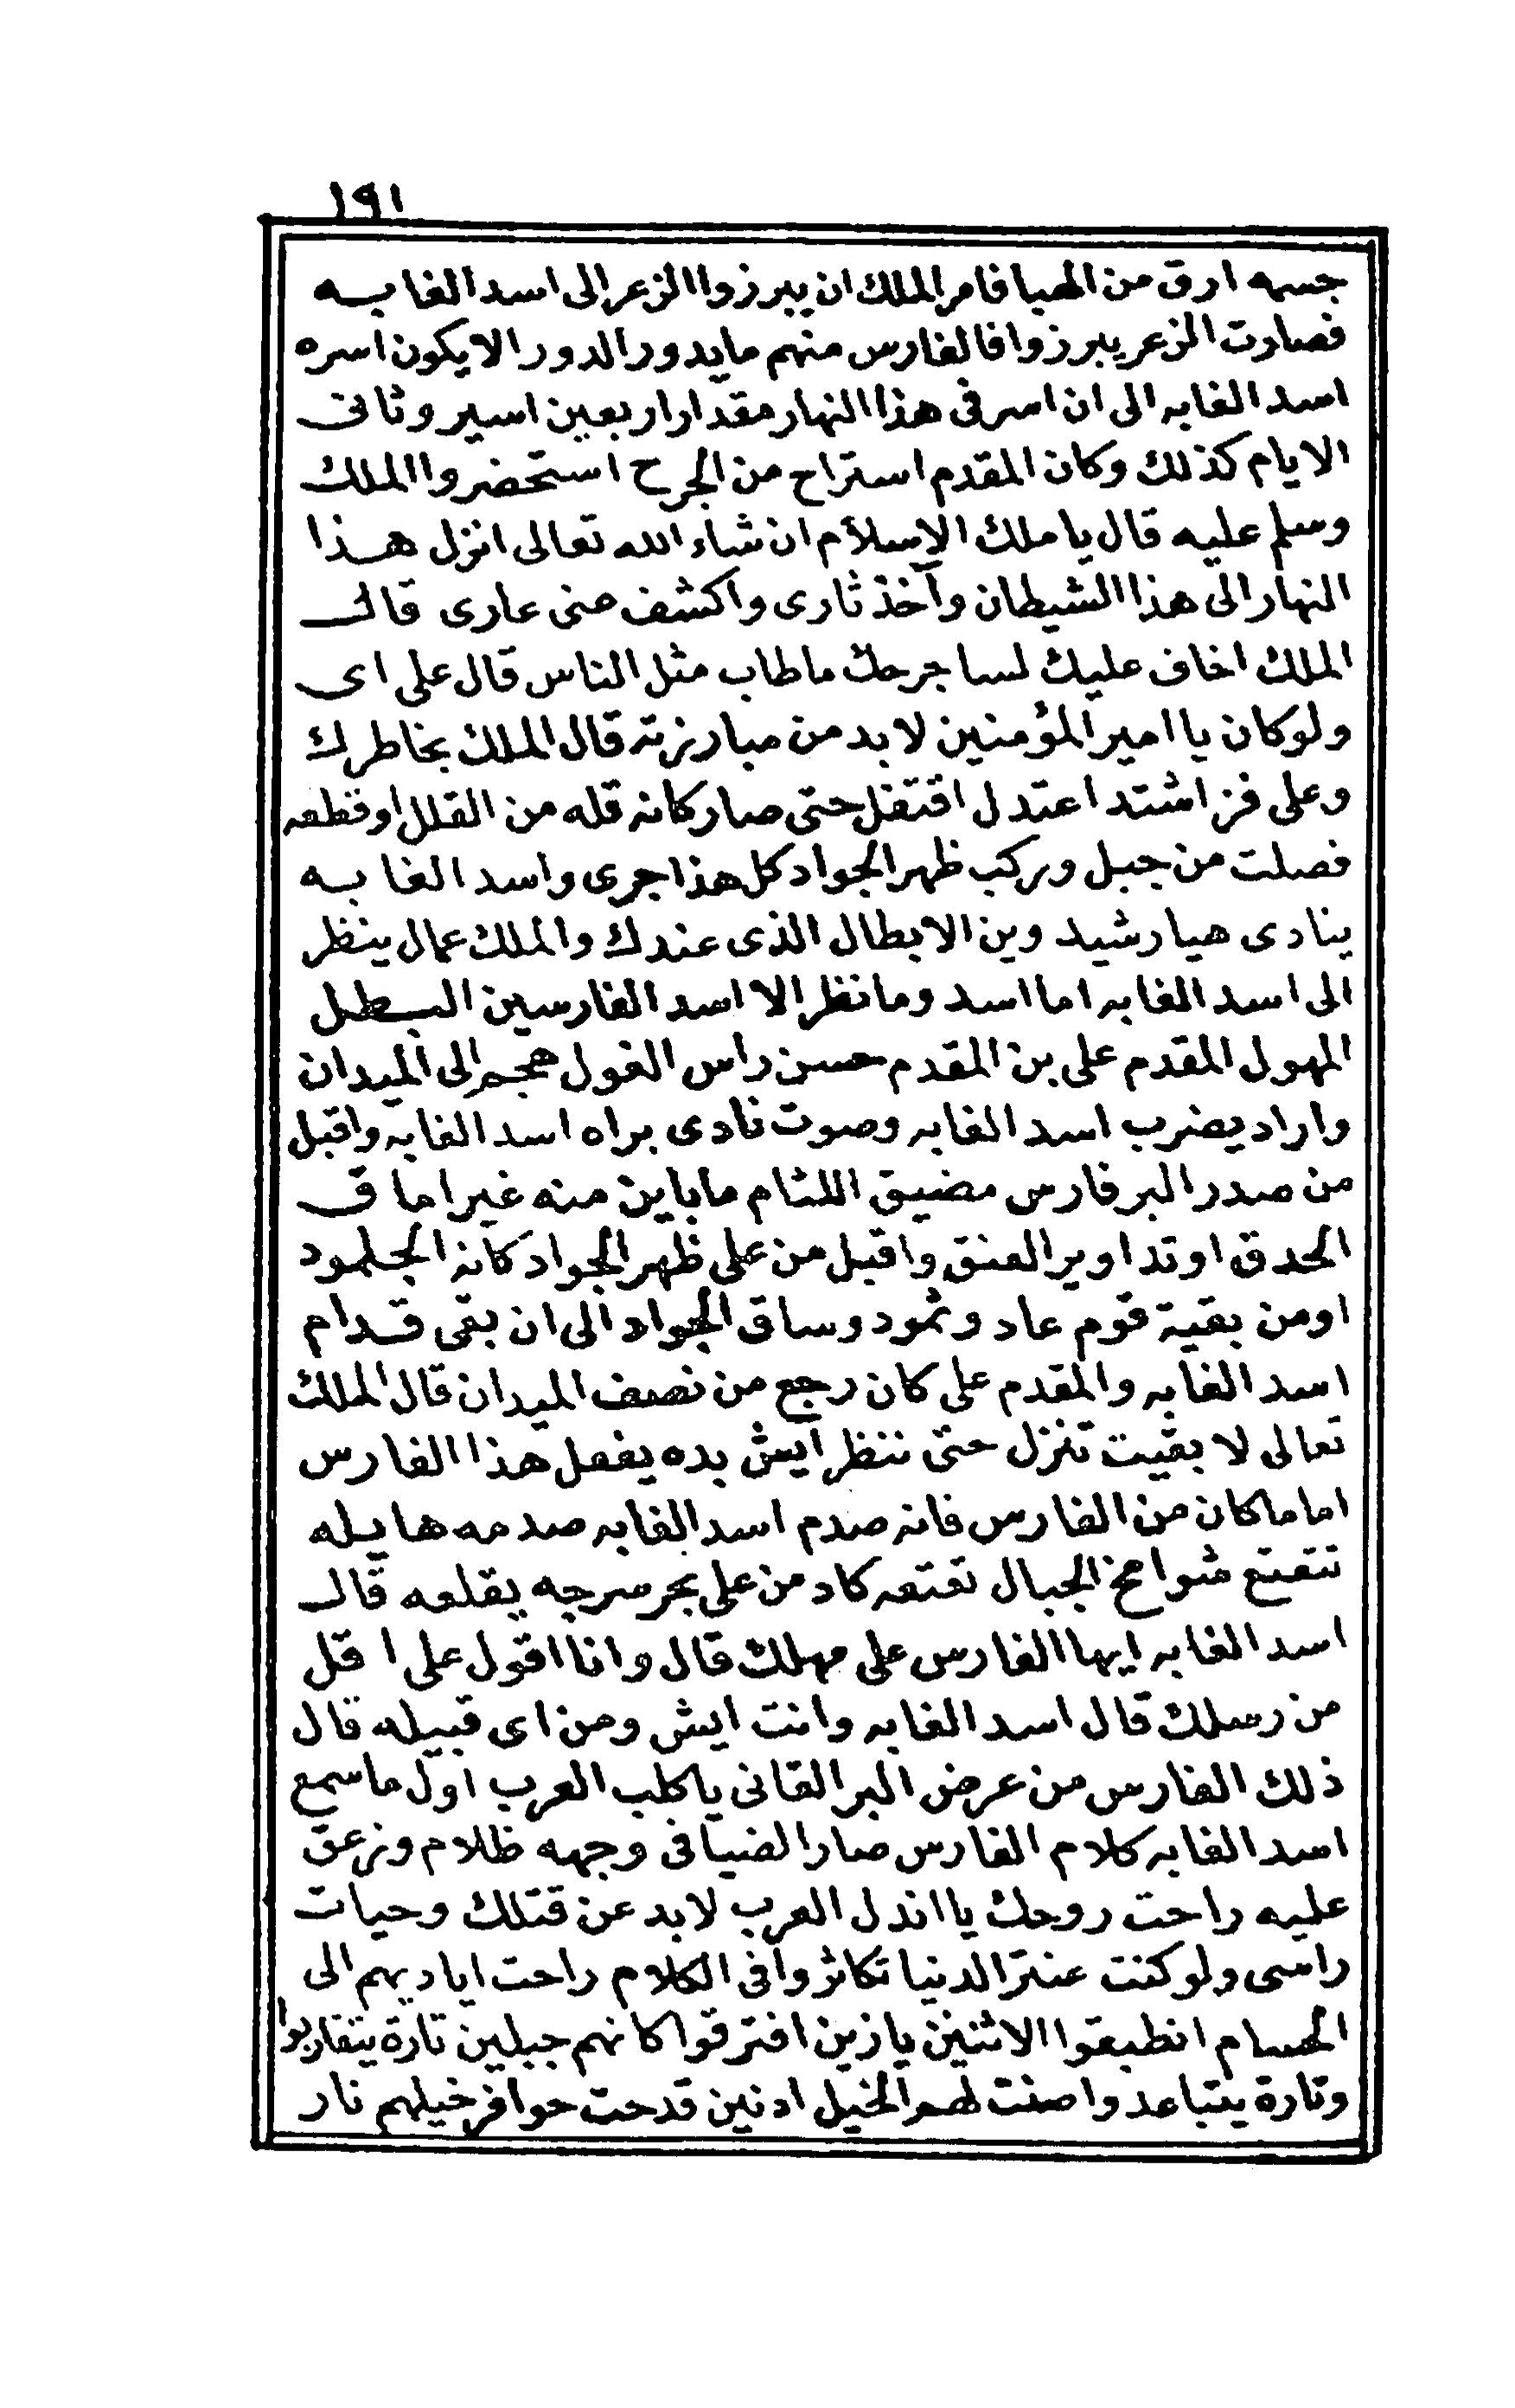 ١٩١
جسمه ارق من الهبا فامر الملك ان يبرزوا الزعر الى اسد الغابه
فصارت الزعر يبرزوا فالفارس منهم ما يدور الدور الا يكون اسره
اسد الغابه الى ان اسر فى هذا النهار مقدار اربعين اسير وثانى
الايام كذلك وكان المقدم استراح من الجرح استحضروا الملك
وسلم عليه قال يا ملك الإسلام ان شاء الله تعالى انزل هذا
النهار الى هذا الشيطان وآخذ ثارى واكشف عنى عارى قال
الملك اخاف عليك لسا جرحك ما طاب مثل الناس قال على اى
ولو كان يا امير المؤمنين لا بد من مبارزته قال الملك بخاطرك
وعلى فز اشتد اعتدل اقتفل حتى صار كانه قله من القلل او قطعه
فصلت من جبل وركب ظهر الجواد كل هذا جرى واسد الغابه
ينادى هيا رشيد وين الابطال الذى عندك والملك عمال ينظر
الى اسد الغابه اما اسد وما نظر الا اسد الفارسين البطل
المهول المقدم على بن المقدم حسن راس الغول هجم الى الميدان
واراد يضرب اسد الغابه وصوت نادى براه اسد الغابه واقبل
من صدر البر فارس مضيق اللثام ما باين منه غير اماق
الحدق او تداوير العنق واقبل من على ظهر الجواد كانه الجلمود
او من بقية قوم عاد وثمود وساق الجواد الى ان بقى قدام
اسد الغابه والمقدم على كان رجع من نصف الميدان قال الملك
تعالى لا بقيت تنزل حتى ننظر آيش بده يفعل هذا الفارس
اما ما كان من الفارس فانه صدم اسد الغابه صدمه هايله
تتعتع شوامخ الجبال تعتعه كاد من على بحر سرجه يقلعه قال
اسد الغابه ايها الفارس على مهلك قال وانا اقول على اقل
من رسلك قال اسد الغابه وانت ايش ومن اى قبيله قال
ذلك الفارس من عرض البر القانى يا كلب العرب اول ما سمع
اسد الغابه كلام الفارس صار الضيا فى وجهه ظلام وزعق
عليه راحت روحك يا اندل العرب لا بد عن قتلك وحيات
راسى ولو كنت عنتر الدنيا تكاثروا فى الكلام راحت اياديهم الى
الحسام انطبقوا الاثنين يا زين افترقوا كانهم جبلين تارة يتقاربوا
وتارة يتباعدوا صنت لهم الخيل ادنين قدحت حوافر خيلهم نار